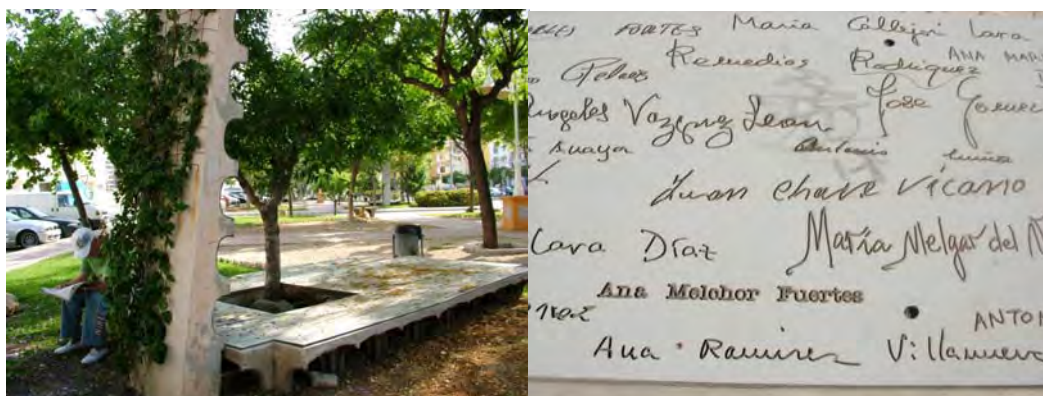 FORTES María Callejón Lara
Remedios Rodriguez ANA MAR
Pelaez
Angeles Vazquez Leon Jose Gomez
Anaya Antonio
Juan Chave Vicario
Lara Díaz María Melgar del
Ana Melchor Fuertes
ANTO
Ana Ramirez Villanueva